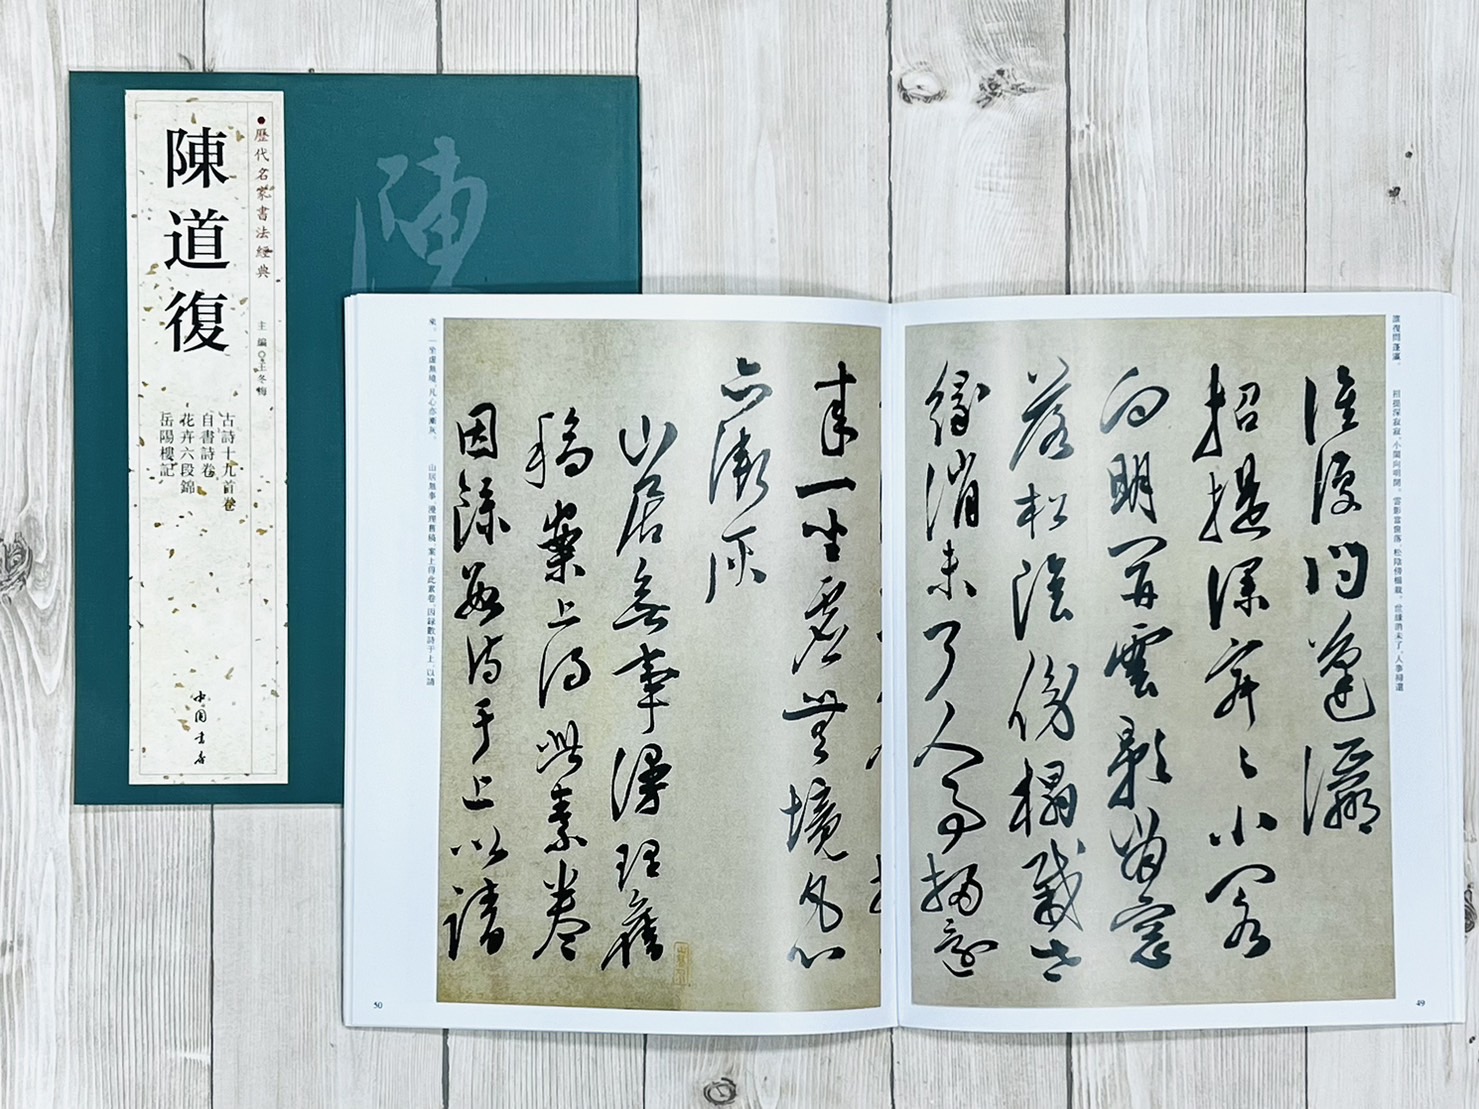 歷代名家書法經典
陳道復
主編○王冬梅
古詩十九首卷
自書詩卷
花卉六段錦
岳陽樓記
中国书店
陳
誰復問蓬瀛
招提深寂〻小閣
向明開雲影當窗
落松陰傍榻栽世
緣消未了人事掃還
來一坐虛無境凡心
亦漸灰
山居無事漫理舊
稿案上得此素卷
因錄數詩于上以請
誰復問蓬瀛。　招提深寂寂，小閣向明開。雲影當窗落，松陰傍榻栽。世緣消未了，人事掃還
來。一坐虛無境，凡心亦漸灰。　山居無事，漫理舊稿，案上得此素卷，因録數詩于上，以請
49
50